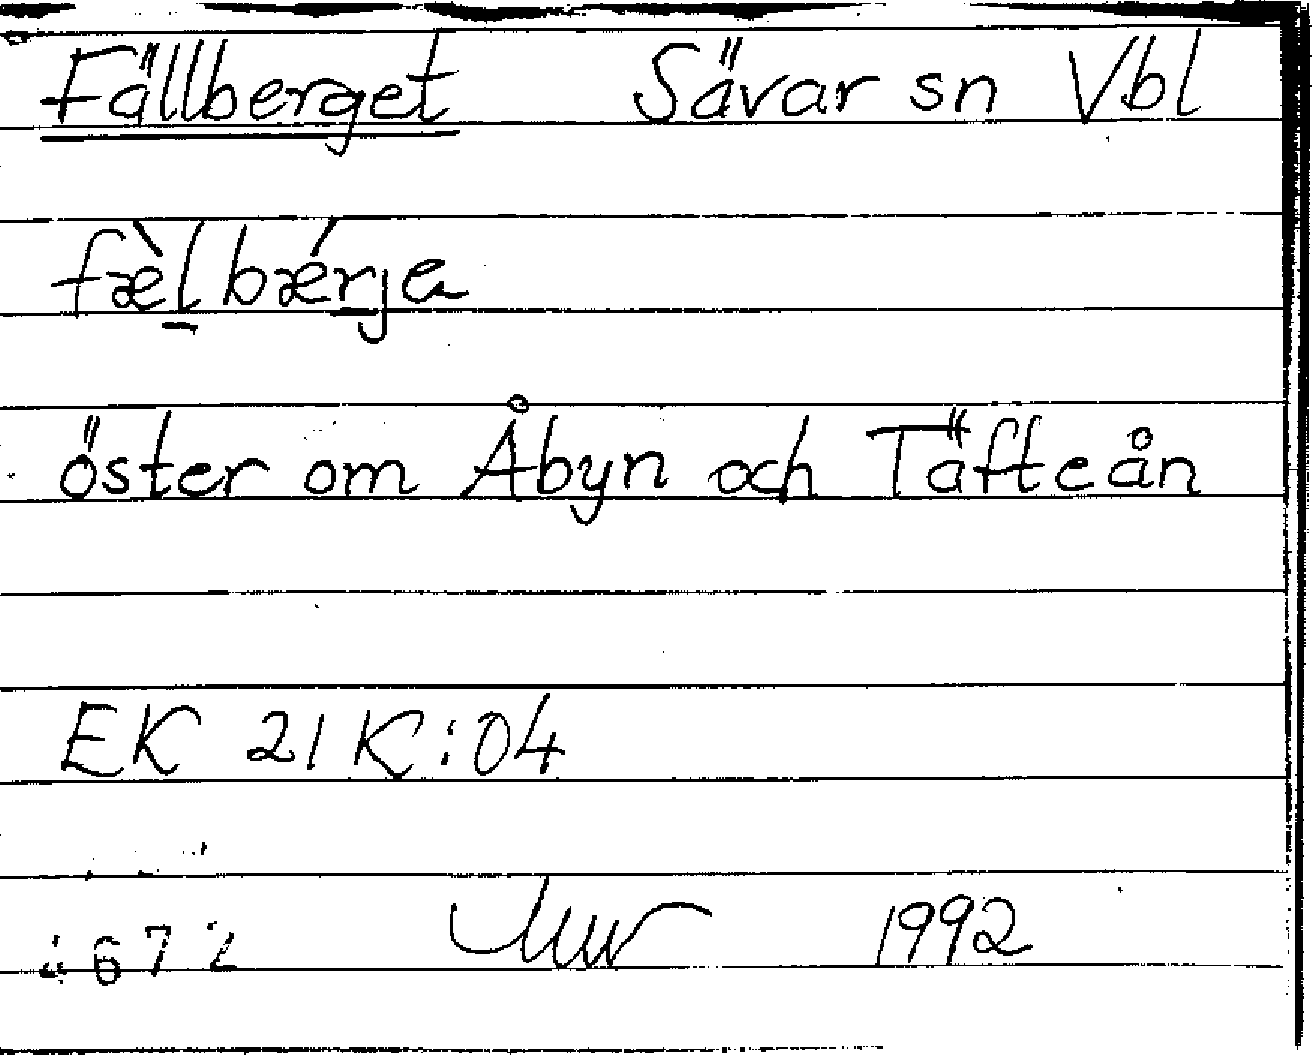 Fällberget Sävar sn Vbl
fæ̀l bǽrja
öster om Åbyn och Täfteån
EK 21K:04
672 1992